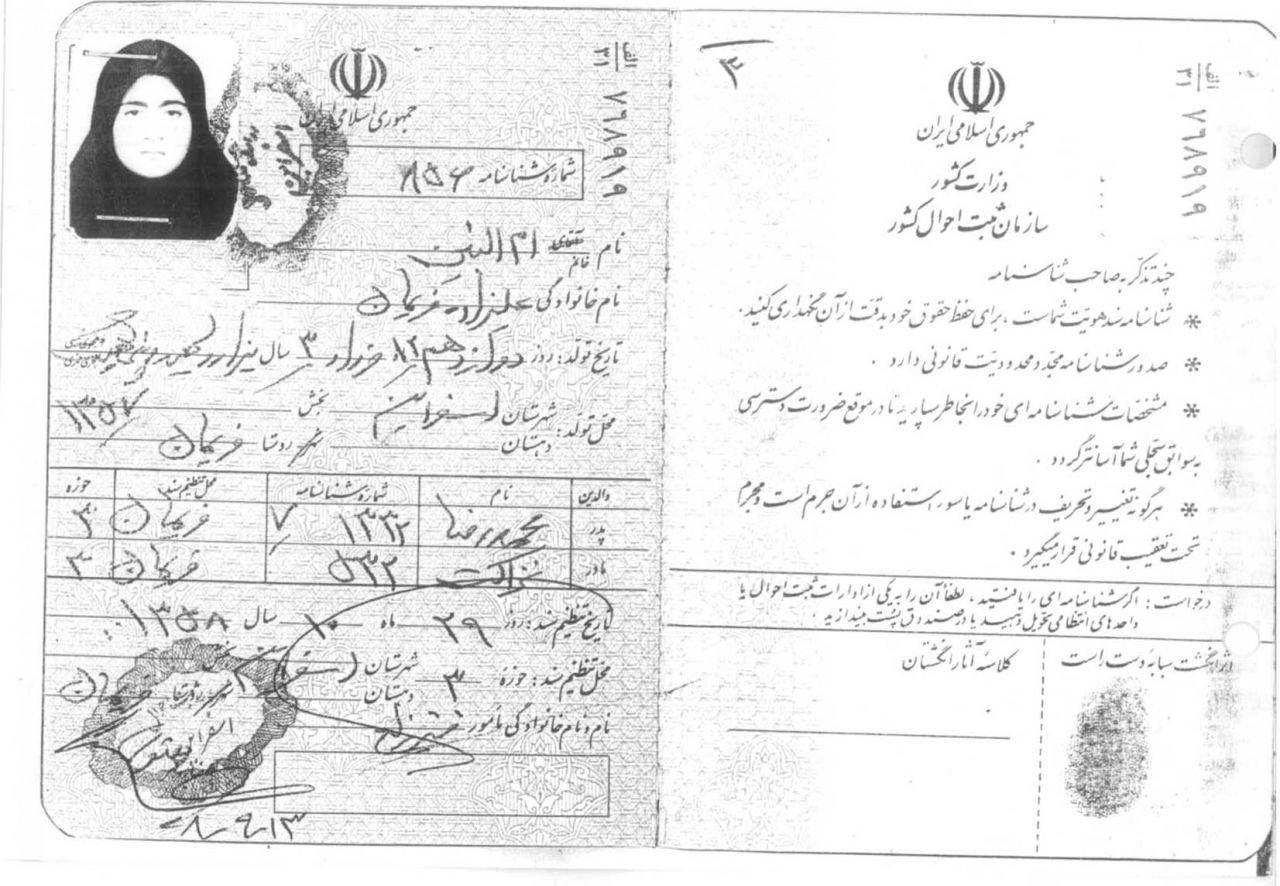 الف
۳۱
۷۶۸۹۱۹
جمهوری اسلامی ایران
شماره شناسنامه ۸۵۶
نام خانم ام البنین
نام خانوادگی علیزاده فریمان
تاریخ تولد: روز دوازدهم ۱۲ خرداد ۳ سال هزار و
محل تولد: شهرستان اسفراین بخش
دهستان شهر روستا فریمان
۱۳۵۷
والدین نام شماره شناسنامه محل تنظیم سند حوزه
پدر محمدرضا ۱۳۳۲ ۷ ۳
مادر نزاکت ۵۳۳ ۳
تاریخ تنظیم سند: روز ۲۹ ماه ۱۰ سال ۱۳۵۸
محل تنظیم سند: حوزه ۳ شهرستان
دهستان
نام و نام خانوادگی مأمور
۶۸/۹/۱۳
۳
الف
۳۱
۷۶۸۹۱۹
جمهوری اسلامی ایران
وزارت کشور
سازمان ثبت احوال کشور
چند تذکر به صاحب شناسنامه
* شناسنامه سند هویت شماست ، برای حفظ حقوق خود بدقت از آن نگهداری کنید .
* صدور شناسنامه مجدد محدودیت قانونی دارد .
* مشخصات شناسنامه ای خود را بخاطر بسپارید تا در موقع ضرورت دسترسی
به سوابق سجلی شما آسانتر گردد .
* هرگونه تغییر و تحریف در شناسنامه یا سوء استفاده از آن جرم است و مجرم
تحت تعقیب قانونی قرار میگیرد .
درخواست : اگر شناسنامه ای را یافتید ، لطفاً آن را به یکی از ادارات ثبت احوال یا
واحدهای انتظامی تحویل دهید یا در صندوق پست بیندازید .
اثر انگشت سبابه دست راست
کلاسه آثار انگشتان